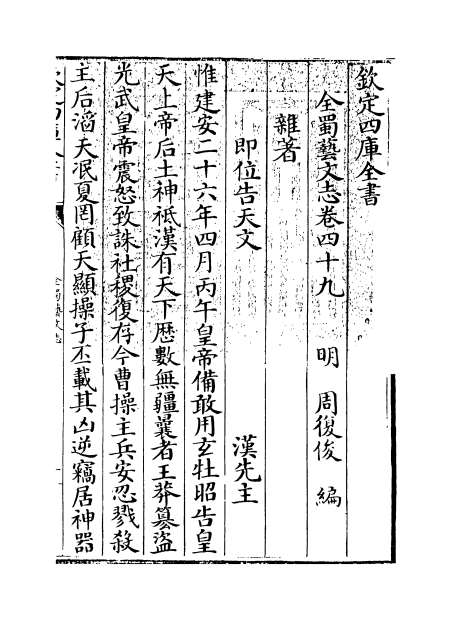 欽定四庫全書
全蜀藝文志卷四十九　明　周復俊　編
雜著
即位告天文　漢先主
惟建安二十六年四月丙午皇帝備敢用玄牡昭告皇
天上帝后土神祗漢有天下歴數無疆曩者王莽簒盜
光武皇帝震怒致誅社稷復存今曹操主兵安忍戮殺
主后滔天泯夏罔顧天顯操子丕載其凶逆竊居神器